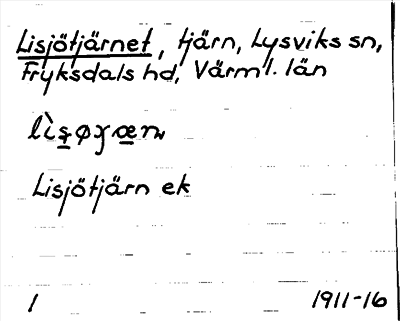 Lisjötjärnet, tjärn, Lysviks sn,
Fryksdals hd, Värml. län
Lisjötjärn ek
1 1911-16